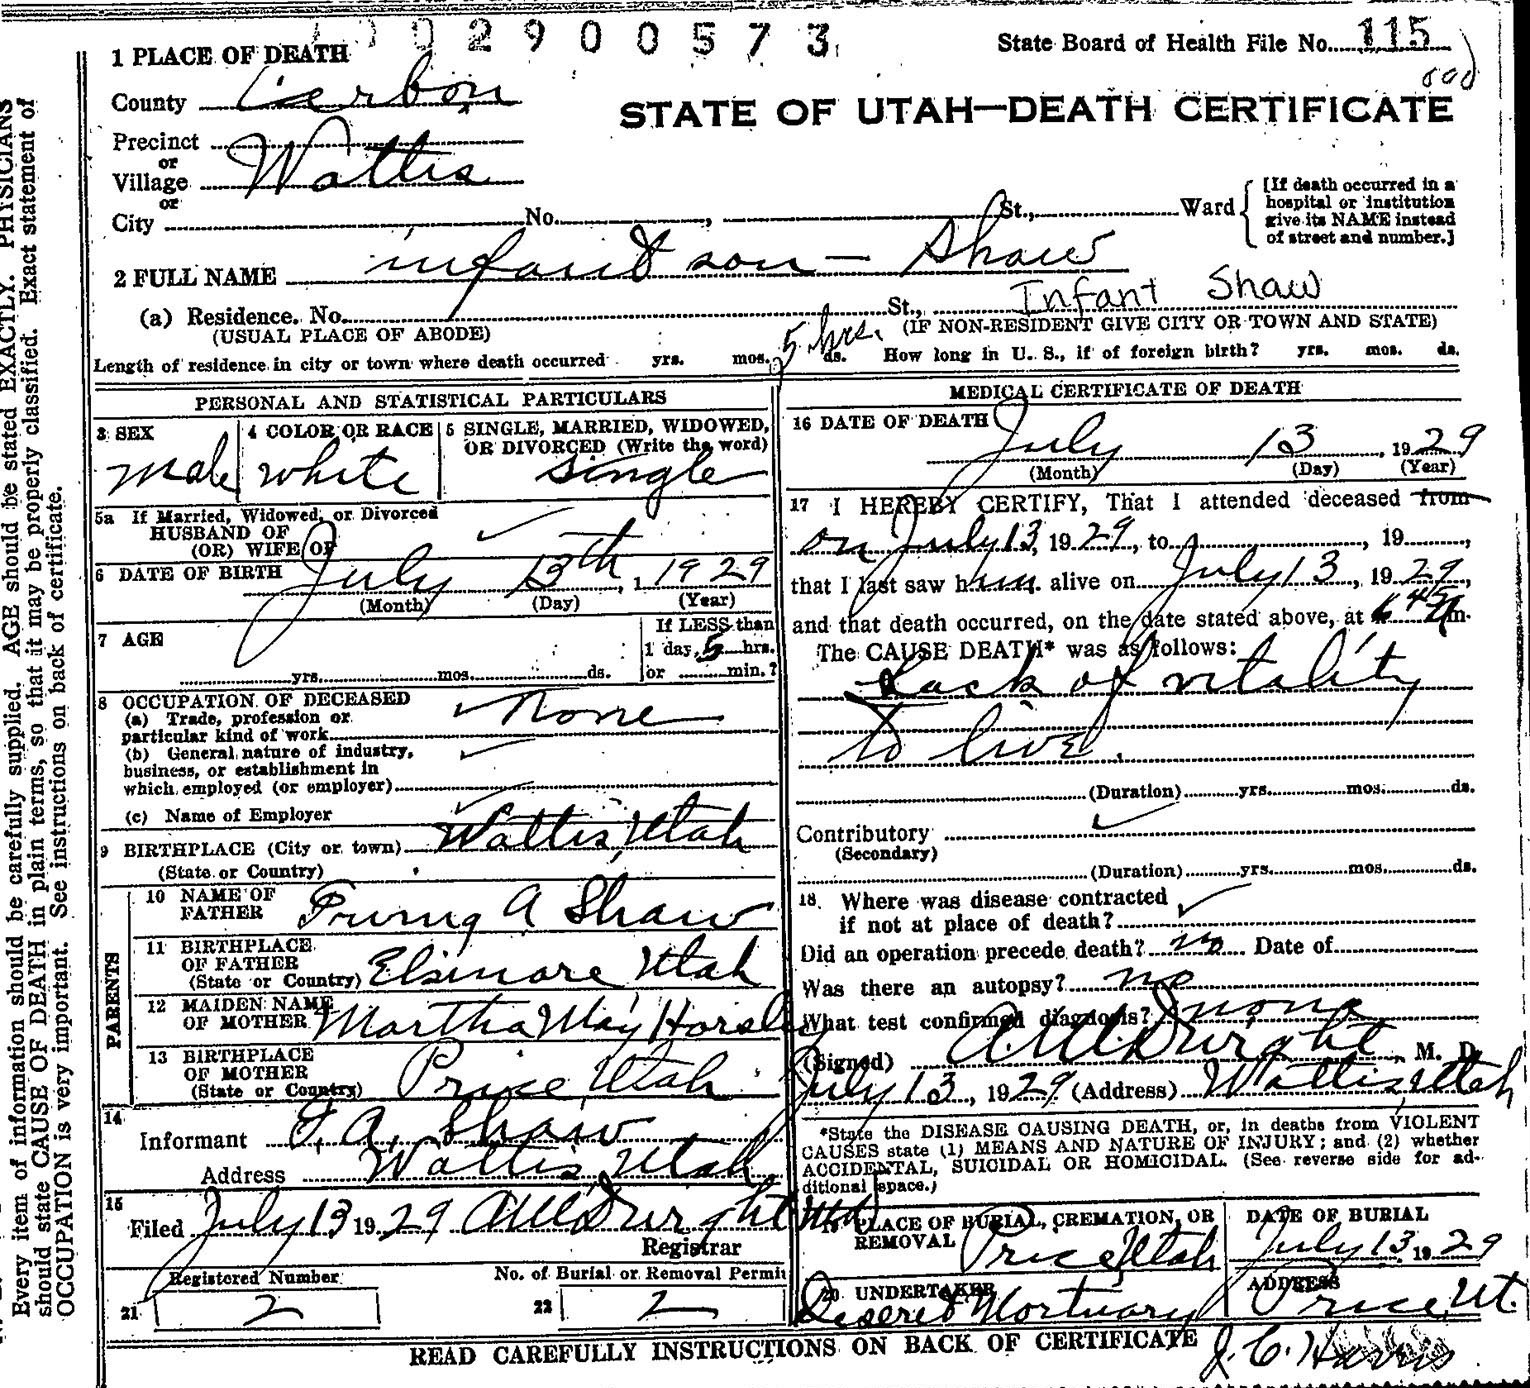 02900573
State Board of Health File No. 115
1 PLACE OF DEATH
County Carbon
STATE OF UTAH—DEATH CERTIFICATE
Precinct
or
Village Wattis
or
City No. , St., Ward
[If death occurred in a
hospital or institution
give its NAME instead
of street and number.]
2 FULL NAME infant son — Shaw
Infant Shaw
(a) Residence. No. St.,
(USUAL PLACE OF ABODE) (IF NON-RESIDENT GIVE CITY OR TOWN AND STATE)
Length of residence in city or town where death occurred yrs. mos. 5 hrs. ds. How long in U. S., if of foreign birth? yrs. mos. ds.
PERSONAL AND STATISTICAL PARTICULARS
3 SEX
male
4 COLOR OR RACE
white
5 SINGLE, MARRIED, WIDOWED,
OR DIVORCED (Write the word)
single
5a If Married, Widowed, or Divorced
HUSBAND OF
(OR) WIFE OF
6 DATE OF BIRTH July 13th, 1 1929
(Month) (Day) (Year)
7 AGE
yrs. mos. ds.
If LESS than
1 day, 5 hrs.
or min.?
8 OCCUPATION OF DECEASED
(a) Trade, profession or
particular kind of work None
(b) General nature of industry,
business, or establishment in
which employed (or employer)
(c) Name of Employer
9 BIRTHPLACE (City or town) Wattis, Utah
(State or Country)
PARENTS
10 NAME OF
FATHER A Shaw
11 BIRTHPLACE
OF FATHER
(State or Country) Elsinore Utah
12 MAIDEN NAME
OF MOTHER Martha May Horsley
13 BIRTHPLACE
OF MOTHER
(State or Country) Price, Utah
14
Informant A. Shaw
Address Wattis, Utah
15
Filed July 13 1929 Dwright Md
Registrar
Registered Number
21 2
No. of Burial or Removal Permit
22 2
MEDICAL CERTIFICATE OF DEATH
16 DATE OF DEATH
July 13, 1929
(Month) (Day) (Year)
17 I HEREBY CERTIFY, That I attended deceased from
on July 13, 1929, to , 19 ,
that I last saw him alive on July 13, 1929,
and that death occurred, on the date stated above, at 6 45 m.
The CAUSE DEATH* was as follows:
Lack of vitality
to live.
(Duration) yrs. mos. ds.
Contributory
(Secondary)
(Duration) yrs. mos. ds.
18. Where was disease contracted
if not at place of death?
Did an operation precede death? no Date of
Was there an autopsy? no
What test confirmed diagnosis? none
(Signed) Dwright, M. D.
July 13, 1929 (Address) Wattis, Utah
*State the DISEASE CAUSING DEATH, or, in deaths from VIOLENT
CAUSES state (1) MEANS AND NATURE OF INJURY; and (2) whether
ACCIDENTAL, SUICIDAL OR HOMICIDAL. (See reverse side for ad-
ditional space.)
19 PLACE OF BURIAL, CREMATION, OR
REMOVAL Price, Utah
DATE OF BURIAL
July 13 1929
20 UNDERTAKER
Deseret Mortuary
ADDRESS
Price Ut.
READ CAREFULLY INSTRUCTIONS ON BACK OF CERTIFICATE
J. C. Harris
Every item of information should be carefully supplied. AGE should be stated EXACTLY. PHYSICIANS
should state CAUSE OF DEATH in plain terms, so that it may be properly classified. Exact statement of
OCCUPATION is very important. See instructions on back of certificate.